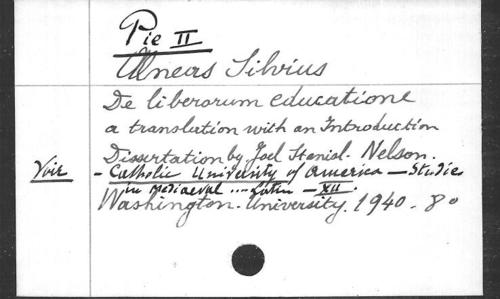 Pie II
Æneas Silvius
De liberorum educatione
a translation with an Introduction
Dissertation by Joel Stanisl. Nelson.
Voir - Catholic University of America - Studies
in Mediaeval ... Latin - XII.
Washington. University. 1940. 8°